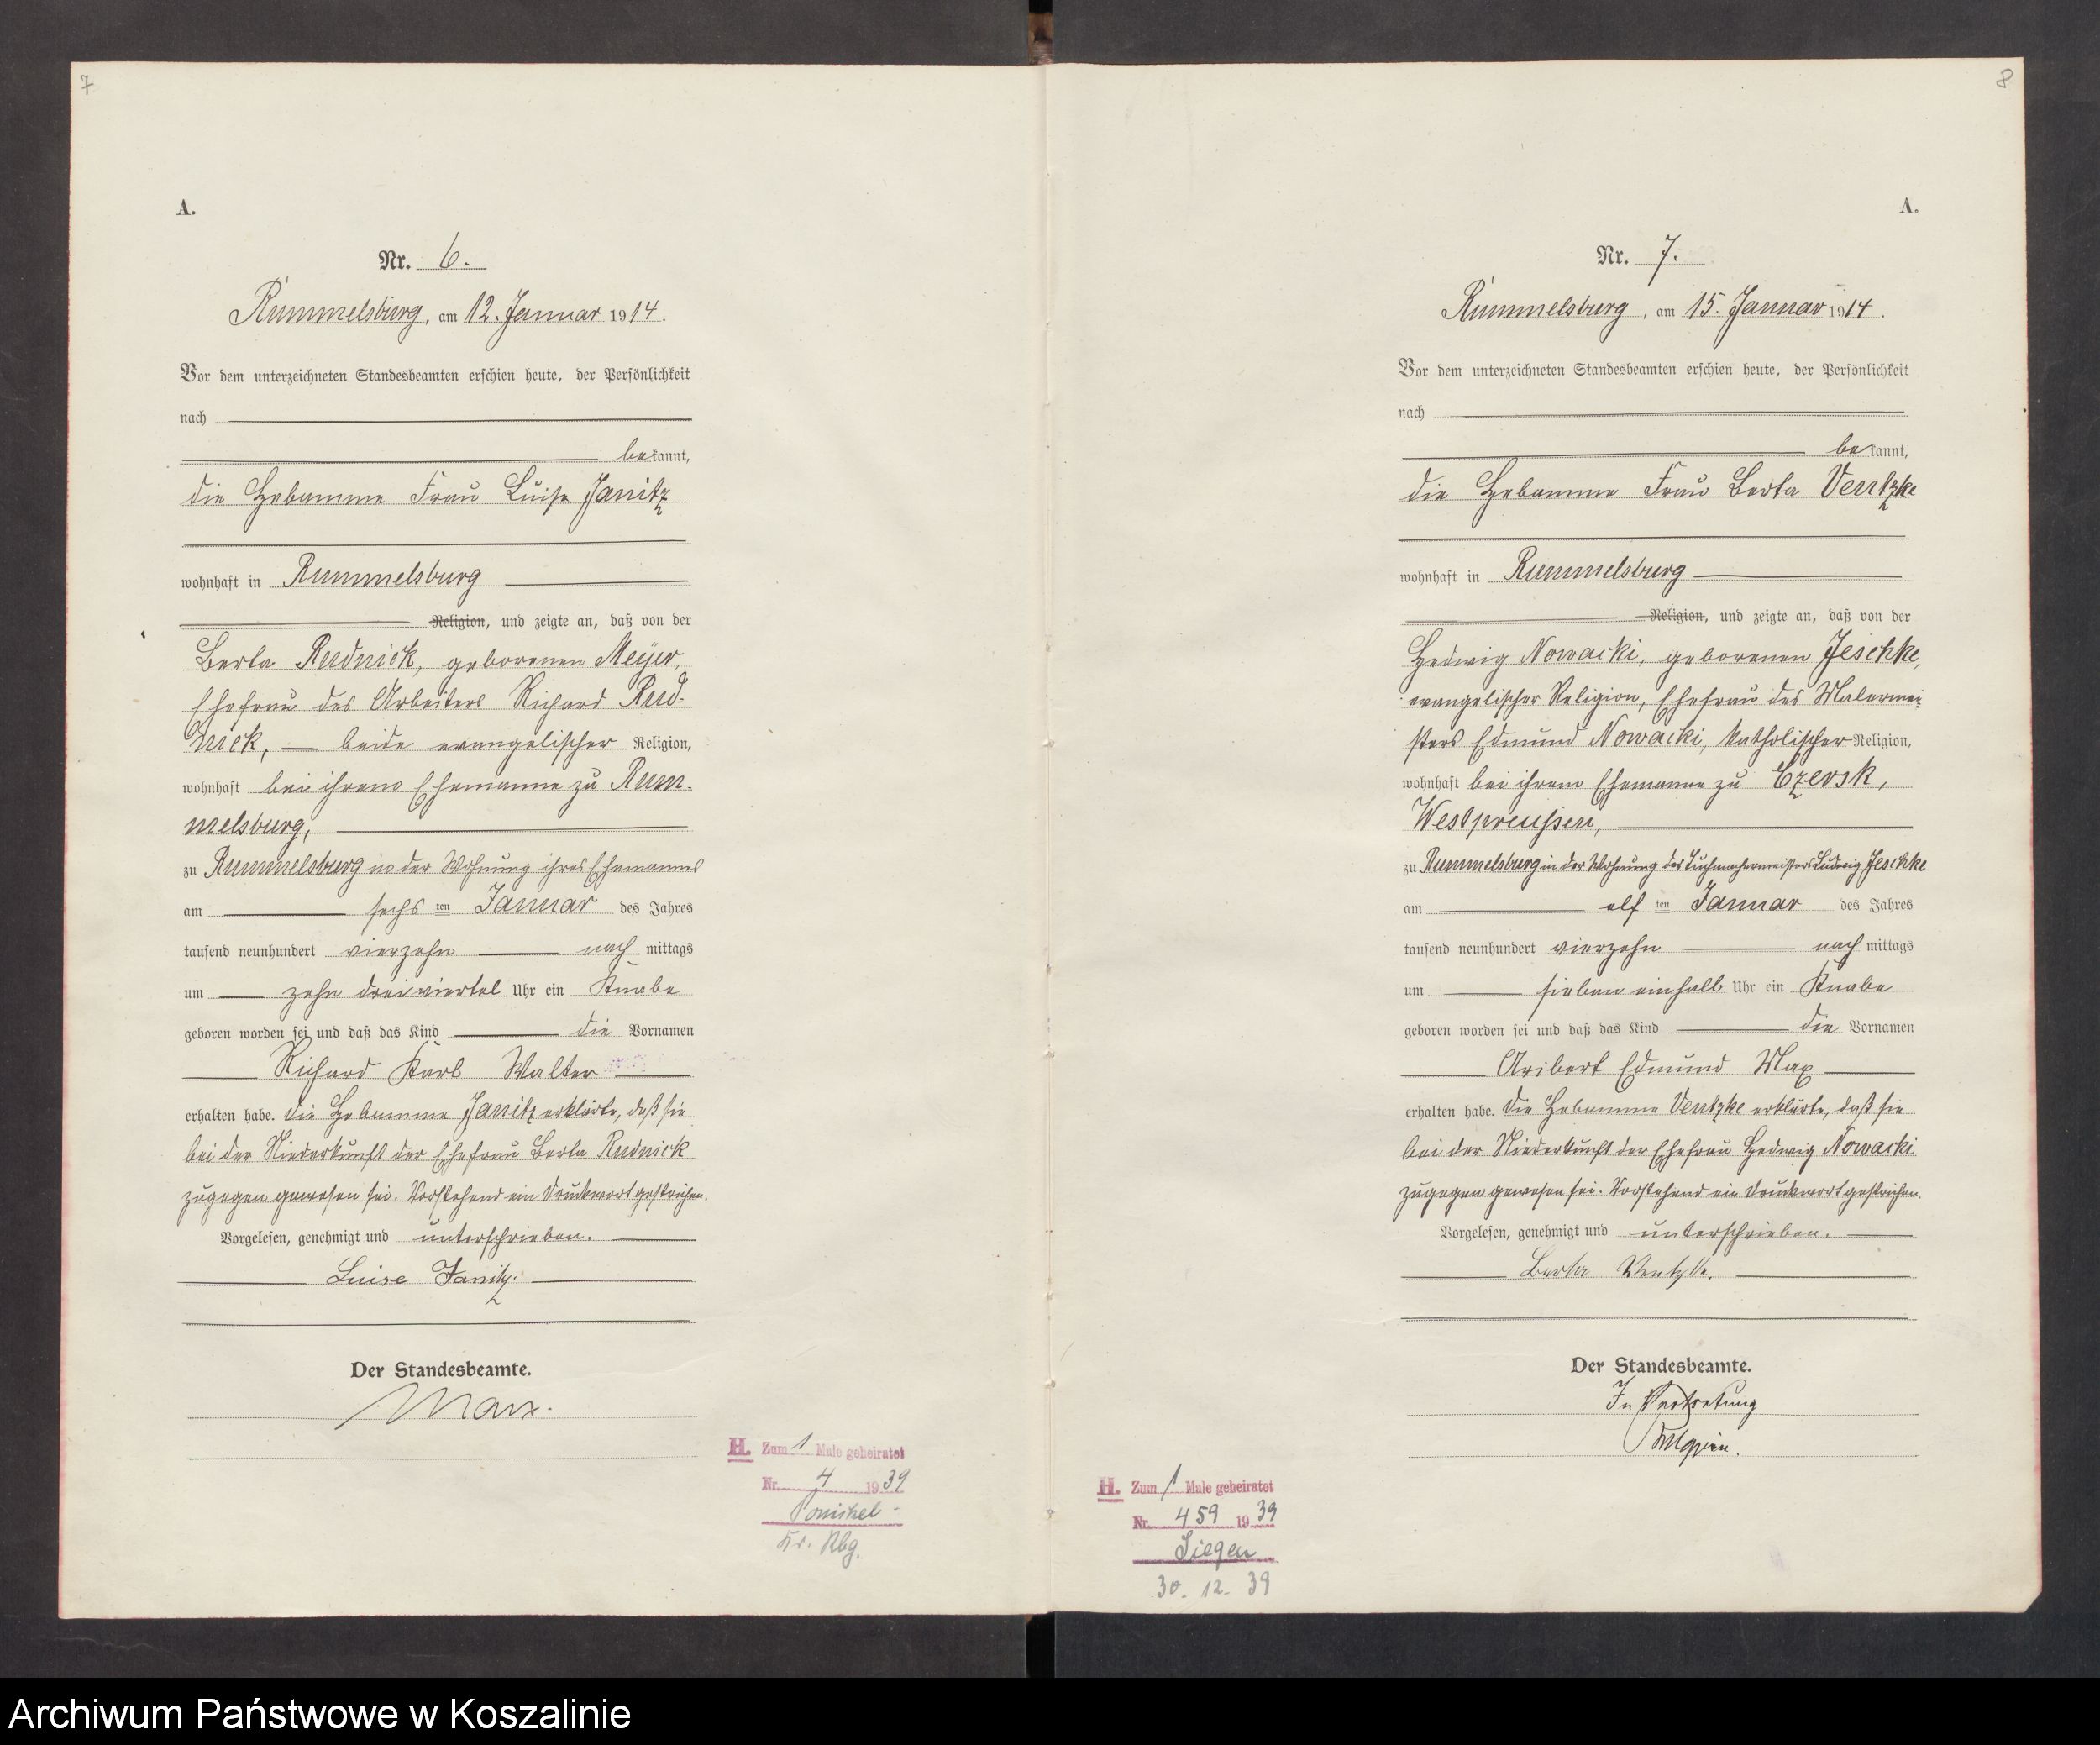 7
A.
Nr. 6.
Rummelsburg, am 12. Januar 1914.
Vor dem unterzeichneten Standesbeamten erschien heute, der Persönlichkeit
nach
bekannt,
die Hebamme Frau Luise Janitz
wohnhaft in Rummelsburg
Religion, und zeigte an, daß von der
Berta Rudnick, geborenen Meyer,
Ehefrau des Arbeiters Richard Rud-
nick, — beide evangelischer Religion,
wohnhaft bei ihrem Ehemanne zu Rum-
melsburg,
zu Rummelsburg in der Wohnung ihres Ehemannes
am sechs ten Januar des Jahres
tausend neunhundert vierzehn nach mittags
um zehn dreiviertel Uhr ein Knabe
geboren worden sei und daß das Kind die Vornamen
Richard Karl Walter
erhalten habe. Die Hebamme Janitz erklärte, daß sie
bei der Niederkunft der Ehefrau Berta Rudnick
zugegen gewesen sei. Vorstehend ein Druckwort gestrichen.
Vorgelesen, genehmigt und unterschrieben.
Luise Janitz.
Der Standesbeamte.
Marx.
H. Zum 1 Male geheiratet
Nr. 4 1939
Ponickel -
Kr. Rbg.
8
A.
Nr. 7.
Rummelsburg, am 15. Januar 1914.
Vor dem unterzeichneten Standesbeamten erschien heute, der Persönlichkeit
nach
bekannt,
die Hebamme Frau Berta Ventzke
wohnhaft in Rummelsburg
Religion, und zeigte an, daß von der
Hedwig Nowacki, geborenen Jeschke,
evangelischer Religion, Ehefrau des Malermei-
sters Edmund Nowacki, katholischer Religion,
wohnhaft bei ihrem Ehemanne zu Czersk,
Westpreußen,
zu Rummelsburg in der Wohnung des Tuchmachermeisters Ludwig Jeschke
am elf ten Januar des Jahres
tausend neunhundert vierzehn nach mittags
um sieben einhalb Uhr ein Knabe
geboren worden sei und daß das Kind die Vornamen
Aribert Edmund Max
erhalten habe. Die Hebamme Ventzke erklärte, daß sie
bei der Niederkunft der Ehefrau Hedwig Nowacki
zugegen gewesen sei. Vorstehend ein Druckwort gestrichen.
Vorgelesen, genehmigt und unterschrieben.
Berta Ventzke.
Der Standesbeamte.
In Vertretung
H. Zum 1 Male geheiratet
Nr. 459 1939
Siegen
30. 12. 39
Archiwum Państwowe w Koszalinie